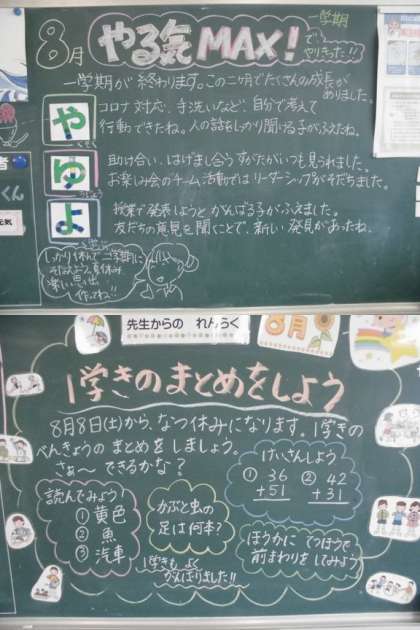 8月
やる気MAX！
一学期
で、
やりきった!!
一学期が終わります。この二ヶ月でたくさんの成長が
ありました。
や
コロナ対応、手洗いなど、自分で考えて
行動できたね。人の話をしっかり聞ける子がふえたね。
ゆ
助け合い、はげまし合うすがたがいつも見られました。
お楽しみ会のチーム活動ではリーダーシップがそだちました。
よ
授業で発表しようとがんばる子がふえました。
友だちの意見を聞くことで、新しい発見があったね。
しっかり休んで二学期に
そなえよう。夏休み
楽しい思い出
作ってね!!
者
くん
元気
先生からの れんらく
8月
1学きのまとめをしよう
8月8日(土)から、なつ休みになります。1学きの
べんきょうの まとめを しましょう。
さぁ〜 できるかな？
読んでみよう！
① 黄色
② 魚
③ 汽車
かぶと虫の
足は何本？
けいさんしよう
① 36
+51
② 42
+31
ほうかに てつぼうで
前まわりを してみよう
1学きも よく
がんばりました!!